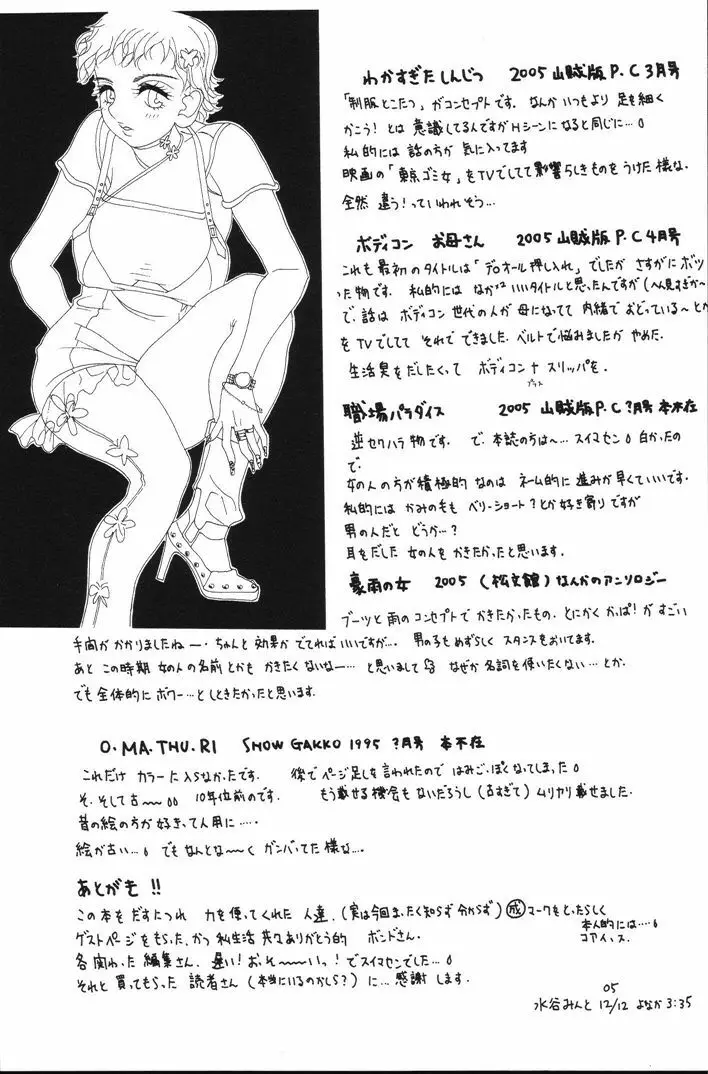 わかすぎたしんじつ 2005 山賊版 P.C 3月号
「制服とこたつ」がコンセプトです。なんかいつもより 足を細く
かこう！とは 意識してるんですがHシーンになると同じに…。
私的には 話の方が 気に入ってます
映画の「東京ゴミ女」をTVでしてて影響らしきものをうけた様な。
全然 違う！っていわれそう…
ボディコン お母さん 2005 山賊版 P.C 4月号
これも最初のタイトルは「デオール押し入れ」でしたが さすがにボツ
った物です。私的には なかなかいいタイトルと思ったんですが(へん見すぎか〜
で、話は ボディコン世代の人が母になってて 内緒でおどっている〜とか
をTVでしてて それで できました。ベルトで悩みましたが やめた。
生活臭をだしたくって ボディコン+スリッパを。
プラス
職場パラダイス 2005 山賊版 P.C ?月号 本不在
逆セクハラ物です。で、本誌の方は〜…スイマセン。白かったの
で。
女の人の方が積極的なのは ネーム的に 進みが早くていいです。
私的には かみの毛も ベリーショート?とか好き寄りですが
男の人だと どうか…?
耳をだした 女の人を かきたかったと思います。
豪雨の女 2005 (松文館)なんかのアンソロジー
ブーツと雨のコンセプトで かきたかったもの。とにかく かっぱ！がすごい
手間がかかりましたねー…ちゃんと 効果が でてればいいですが…。男の子もめずらしく スタンスもおいてます。
あと この時期 女の人の名前とかも かきたくないなー…と思いまして なぜか 名詞を使いたくない…とか。
でも全体的に ボワー…と しときたかったと思います。
O.MA.THU.RI SHOW GAKKO 1995 ?月号 本不在
これだけ カラーに入らなかったです。後でページ足しを言われたので はみごっぽくなってしまった。
そ、そして古〜〜 10年位前のです。もう載せる機会も ないだろうし(古すぎて)ムリヤリ載せました。
昔の絵の方が好きって人用に…。
絵が古い…。でもなんとな〜〜く ガンバってた様な…。
あとがき !!
この本をだすにつれ 力を使ってくれた 人達、(実は今回まったく知らず分からず)成マークをとったらしく
本人的には…。
コアイっス。
ゲストページをもらった、かつ私生活 共々ありがとう的 ボンドさん。
各関わった編集さん、遅い！お、そ〜〜いっ！でスイマセンでした…。
それと 買ってもらった 読者さん(本当にいるのかしら?)に…感謝します。
05
水谷みんと 12/12 よなか 3:35